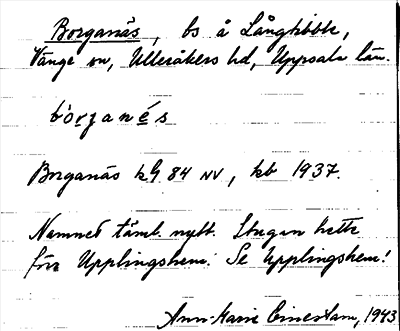 Borganäs, bs å Långtibble,
Vänge sn, Ulleråkers hd, Uppsala län.
bòrjanés
Borganäs kG 84 NV, kb 1937.
Namnet täml. nytt. Stugan hette
förr Upplingshem. Se Upplingshem!
Ann-Marie 1943